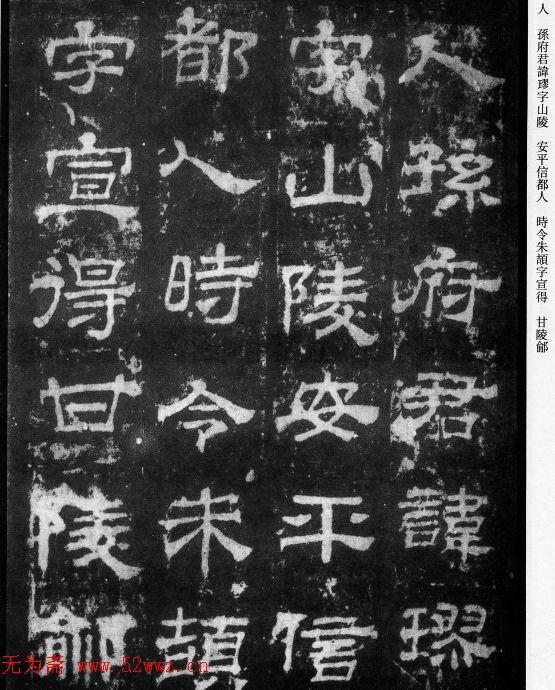 人孫府君諱璆
字山陵安平信
都人時令朱頡
字宣得甘陵鄃
人　孫府君諱璆字山陵　安平信都人　時令朱頡字宣得　甘陵鄃
无为斋 www.52wwz.cn